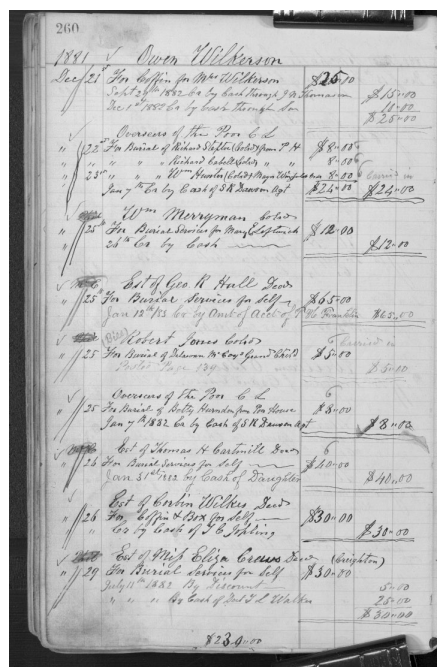 260
1881 Owen Wilkerson
Dec 21st For Coffin for Mrs Wilkerson $25.00
Sept 2 1882 Cr by Cash through J N Thomason $15=00
Dec 1st 1882 Cr by Cash through Son 10=00
$25=00
Overseers of the Poor C L
" 22d For Burial of Richard (Cold) from P H $8=00
" " " " Richard Cabell (Cold) " " 8=00
" 23d " " " Wm (Cold) 8=00 Carried in
Jan 7th Cr by Cash of S R Dawson Agt $24=00 $24=00
Wm Merryman Cold
" 25th For Burial Services for Mary Leftwich $12=00
" 26th Cr by Cash $12=00
Est of Geo. R Hull Decd
" 25th For Burial Services for Self $65=00
Jan 12th 83 Cr by Amt of Acct of Franklin $65=00
Robert Jones Cold Carried in
" 25 For Burial of Grand Child $5=00
Page 139 $5=00
Overseers of the Poor C L
" 25 For Burial of Betty Herndon from Poor House $8=00
Jan 7th 1882 Cr by Cash of S R Dawson Agt $8=00
Est of Thomas H Cartmill Decd
" 25 For Burial Services for Self $40=00
Jan 31st 1882 by Cash of Daughter $40=00
Est of Corbin Wilkes Decd
" 26 For Coffin & Box for Self $30=00
" " Cr by Cash of $30=00
Est of Miss Eliza Crews Decd (Creighton)
" 29 For Burial Services for Self $30=00
July 11th 1882 By Discount 5=00
" " " By Cash of T L Walker 25=00
$30=00
$239=00